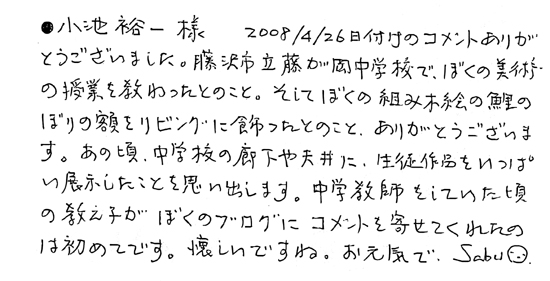 ●小池裕一様 2008/4/26日付けのコメントありが
とうございました。藤沢市立藤が岡中学校で、ぼくの美術
の授業を教わったとのこと。そしてぼくの組み木絵の鯉の
ぼりの額をリビングに飾ったとのこと、ありがとうございま
す。あの頃、中学校の廊下や天井に、生徒作品をいっぱ
い展示したことを思い出します。中学教師をしていた頃
の教え子がぼくのブログにコメントを寄せてくれたの
は初めてです。懐しいですね。お元気で、Sabu